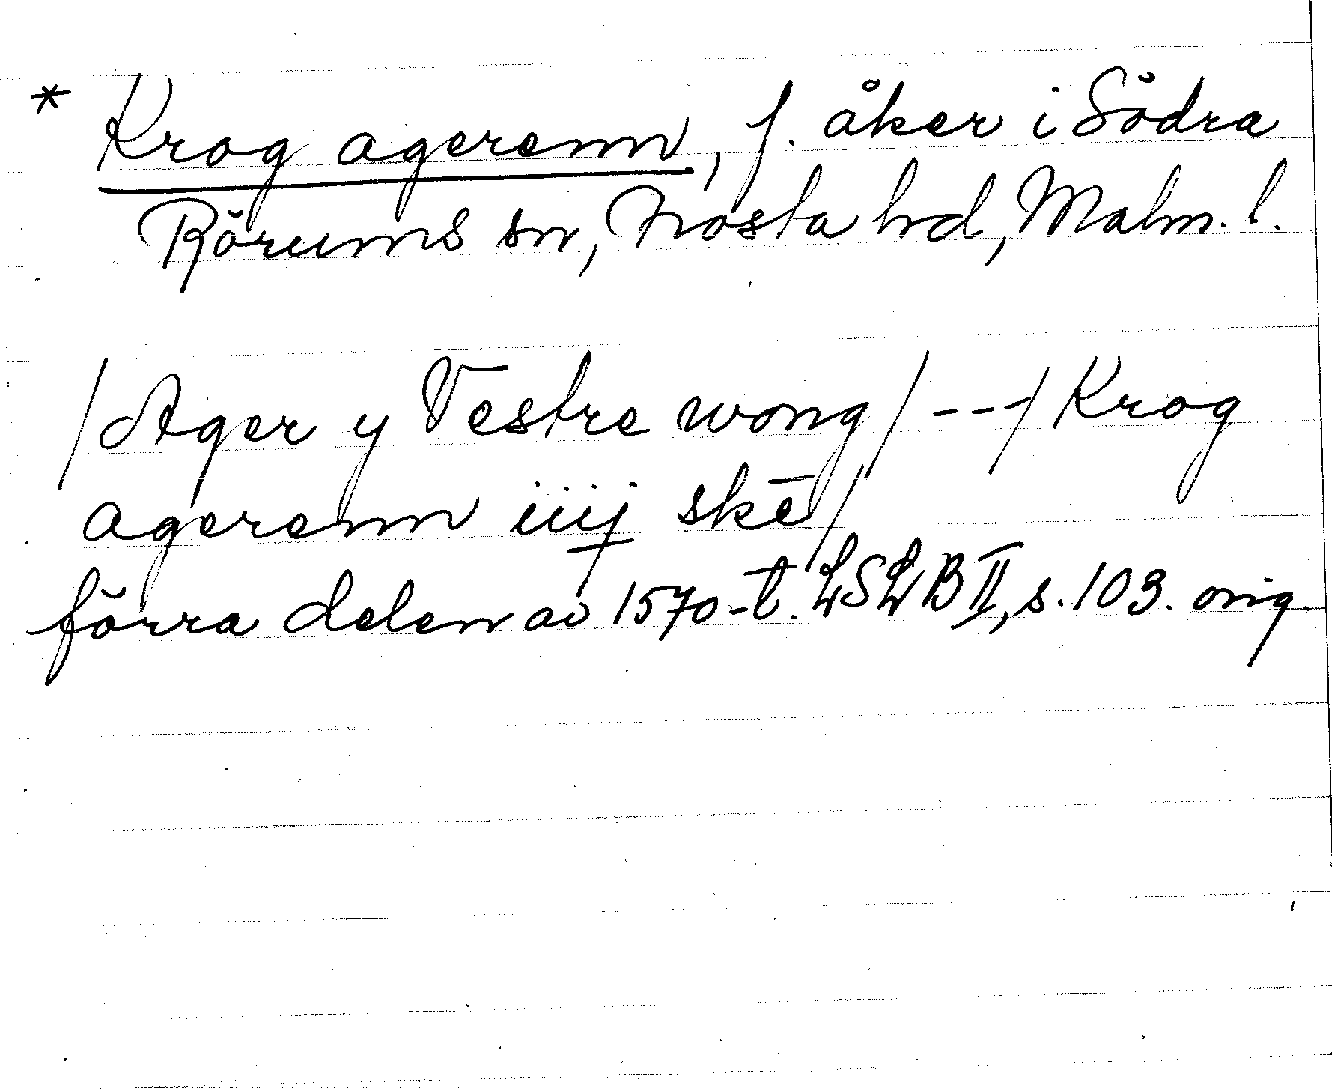 * Krog agerenn, f. åker i Södra
Rörums sn, Frosta hd, Malm. l.
/Ager y Vestre wong/ --/ Krog
agerenn iiij skē/
förra delen av 1570-t. LSLB II, s. 103. orig